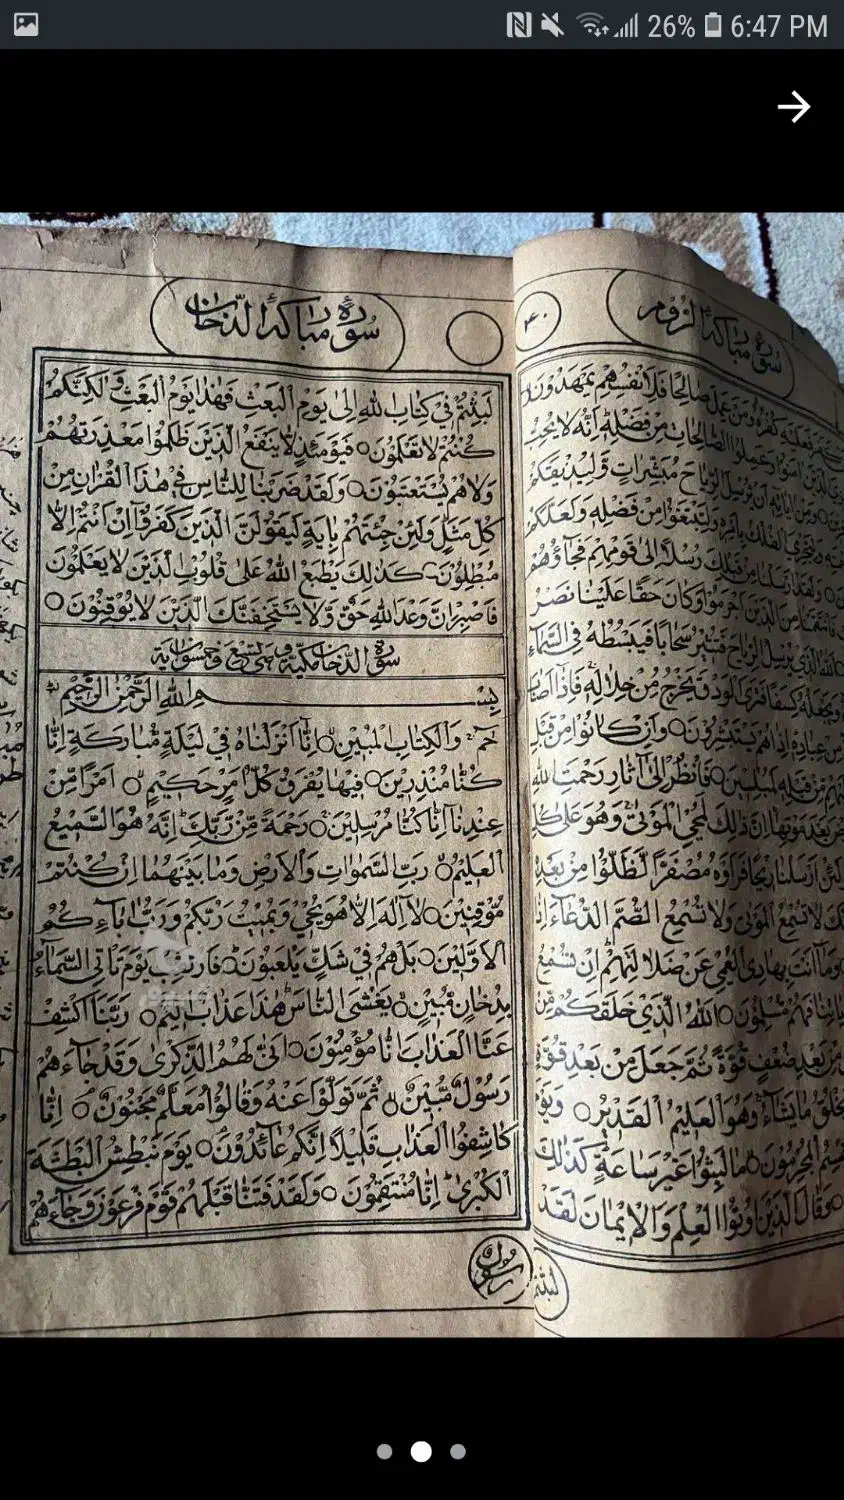 26% 6:47 PM
سورة مباركة الروم
۴۰
كفر فعليه كفره ومن عمل صالحا فلانفسهم يمهدون
الذين امنوا وعملوا الصالحات من فضله انه لا يحب
ومن اياته ان يرسل الرياح مبشرات وليذيقكم
ولتجري الفلك بامره ولتبتغوا من فضله ولعلكم
ولقد ارسلنا من قبلك رسلا الى قومهم فجاؤهم
فانتقمنا من الذين اجرموا وكان حقا علينا نصر
الله الذي يرسل الرياح فتثير سحابا فيبسطه في السماء
ويجعله كسفا فترى الودق يخرج من خلاله فاذا اصاب
من عباده اذا هم يستبشرون وان كانوا من قبل
من قبله لمبلسين فانظر الى اثار رحمت الله
بعد موتها ان ذلك لمحي الموتى وهو على كل
ولئن ارسلنا ريحا فراوه مصفرا لظلوا من بعده
لا تسمع الموتى ولا تسمع الصم الدعاء اذا
وما انت بهادي العمي عن ضلالتهم ان تسمع
باياتنا فهم مسلمون الله الذي خلقكم من
من بعد ضعف قوة ثم جعل من بعد قوة
يخلق ما يشاء وهو العليم القدير ويوم
يقسم المجرمون ما لبثوا غير ساعة كذلك
وقال الذين اوتوا العلم والايمان لقد
لبثتم
سورة مباركة الدخان
لبثتم في كتاب الله الى يوم البعث فهذا يوم البعث ولكنكم
كنتم لا تعلمون فيومئذ لا ينفع الذين ظلموا معذرتهم
ولا هم يستعتبون ولقد ضربنا للناس في هذا القران من
كل مثل ولئن جئتهم باية ليقولن الذين كفروا ان انتم الا
مبطلون كذلك يطبع الله على قلوب الذين لا يعلمون
فاصبر ان وعد الله حق ولا يستخفنك الذين لا يوقنون
سورة الدخان مكية وهي تسع وخمسون اية
بسم الله الرحمن الرحيم
حم والكتاب المبين انا انزلناه في ليلة مباركة انا
كنا منذرين فيها يفرق كل امر حكيم امرا من
عندنا انا كنا مرسلين رحمة من ربك انه هو السميع
العليم رب السموات والارض وما بينهما ان كنتم
موقنين لا اله الا هو يحيي ويميت ربكم ورب ابائكم
الاولين بل هم في شك يلعبون فارتقب يوم تاتي السماء
بدخان مبين يغشى الناس هذا عذاب اليم ربنا اكشف
عنا العذاب انا مؤمنون انى لهم الذكرى وقد جاءهم
رسول مبين ثم تولوا عنه وقالوا معلم مجنون انا
كاشفوا العذاب قليلا انكم عائدون يوم نبطش البطشة
الكبرى انا منتقمون ولقد فتنا قبلهم قوم فرعون وجاءهم
رسول